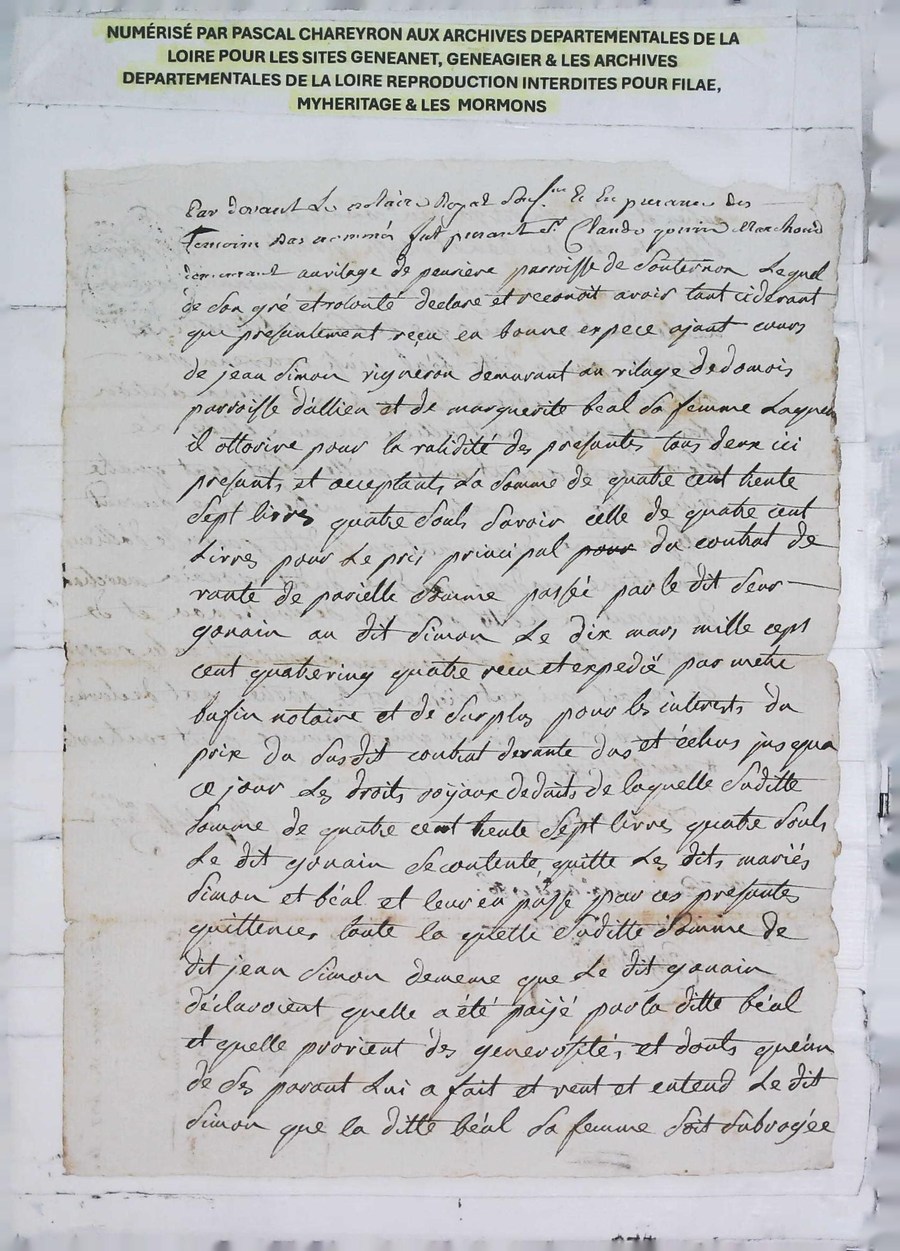 NUMÉRISÉ PAR PASCAL CHAREYRON AUX ARCHIVES DEPARTEMENTALES DE LA
LOIRE POUR LES SITES GENEANET, GENEAGIER & LES ARCHIVES
DEPARTEMENTALES DE LA LOIRE REPRODUCTION INTERDITES POUR FILAE,
MYHERITAGE & LES MORMONS
Par devant Le notaire Royal Et En presance des
Temoins Bas nommés fut presant Claude gonin Marchand
demeurant auvilage de parroisse de Souternon Lequel
de Son gré et volonté declare et reconoit avoir tant cidevant
que presentement reçu en bonne espece ajant cours
de jean Simon vigneron demurant au vilage Dedomois
parroisse d'allieu et de marguerite béal Sa femme Laquel
il ottorise pour la validité des presantes tous deux ici
presents et acceptants La Somme de quatre cent trente
Sept livres quatre Souls Savoir celle de quatre cent
Livres pour Le pris principal pour du contrat de
vante de parielle Somme passée par le dit Seur
gonain au dit Simon Le dix mars mille cept
cent quatreving quatre recu et expedié par metre
bufin notaire et de Surplus pour les interests du
prix du Susdit contrat devante dus et échus jusqua
ce jour Les droits roijaux dedaits de laquelle Suditte
Somme de quatre cent trente Sept livres quatre Souls
Le dit gonain Secontente, quitte Les dits mariés
Simon et béal et leur en passe par ces presantes
quittences toute la quelle Suditte Somme de
dit jean Simon dememe que Le dit gonain
déclaroient quelle a été paijé par la ditte béal
et quelle provient des generosités et donts quéun
de Ses parant Lui a fait et veut et entend Le dit
Simon que la ditte béal Sa femme Soit Subrogée